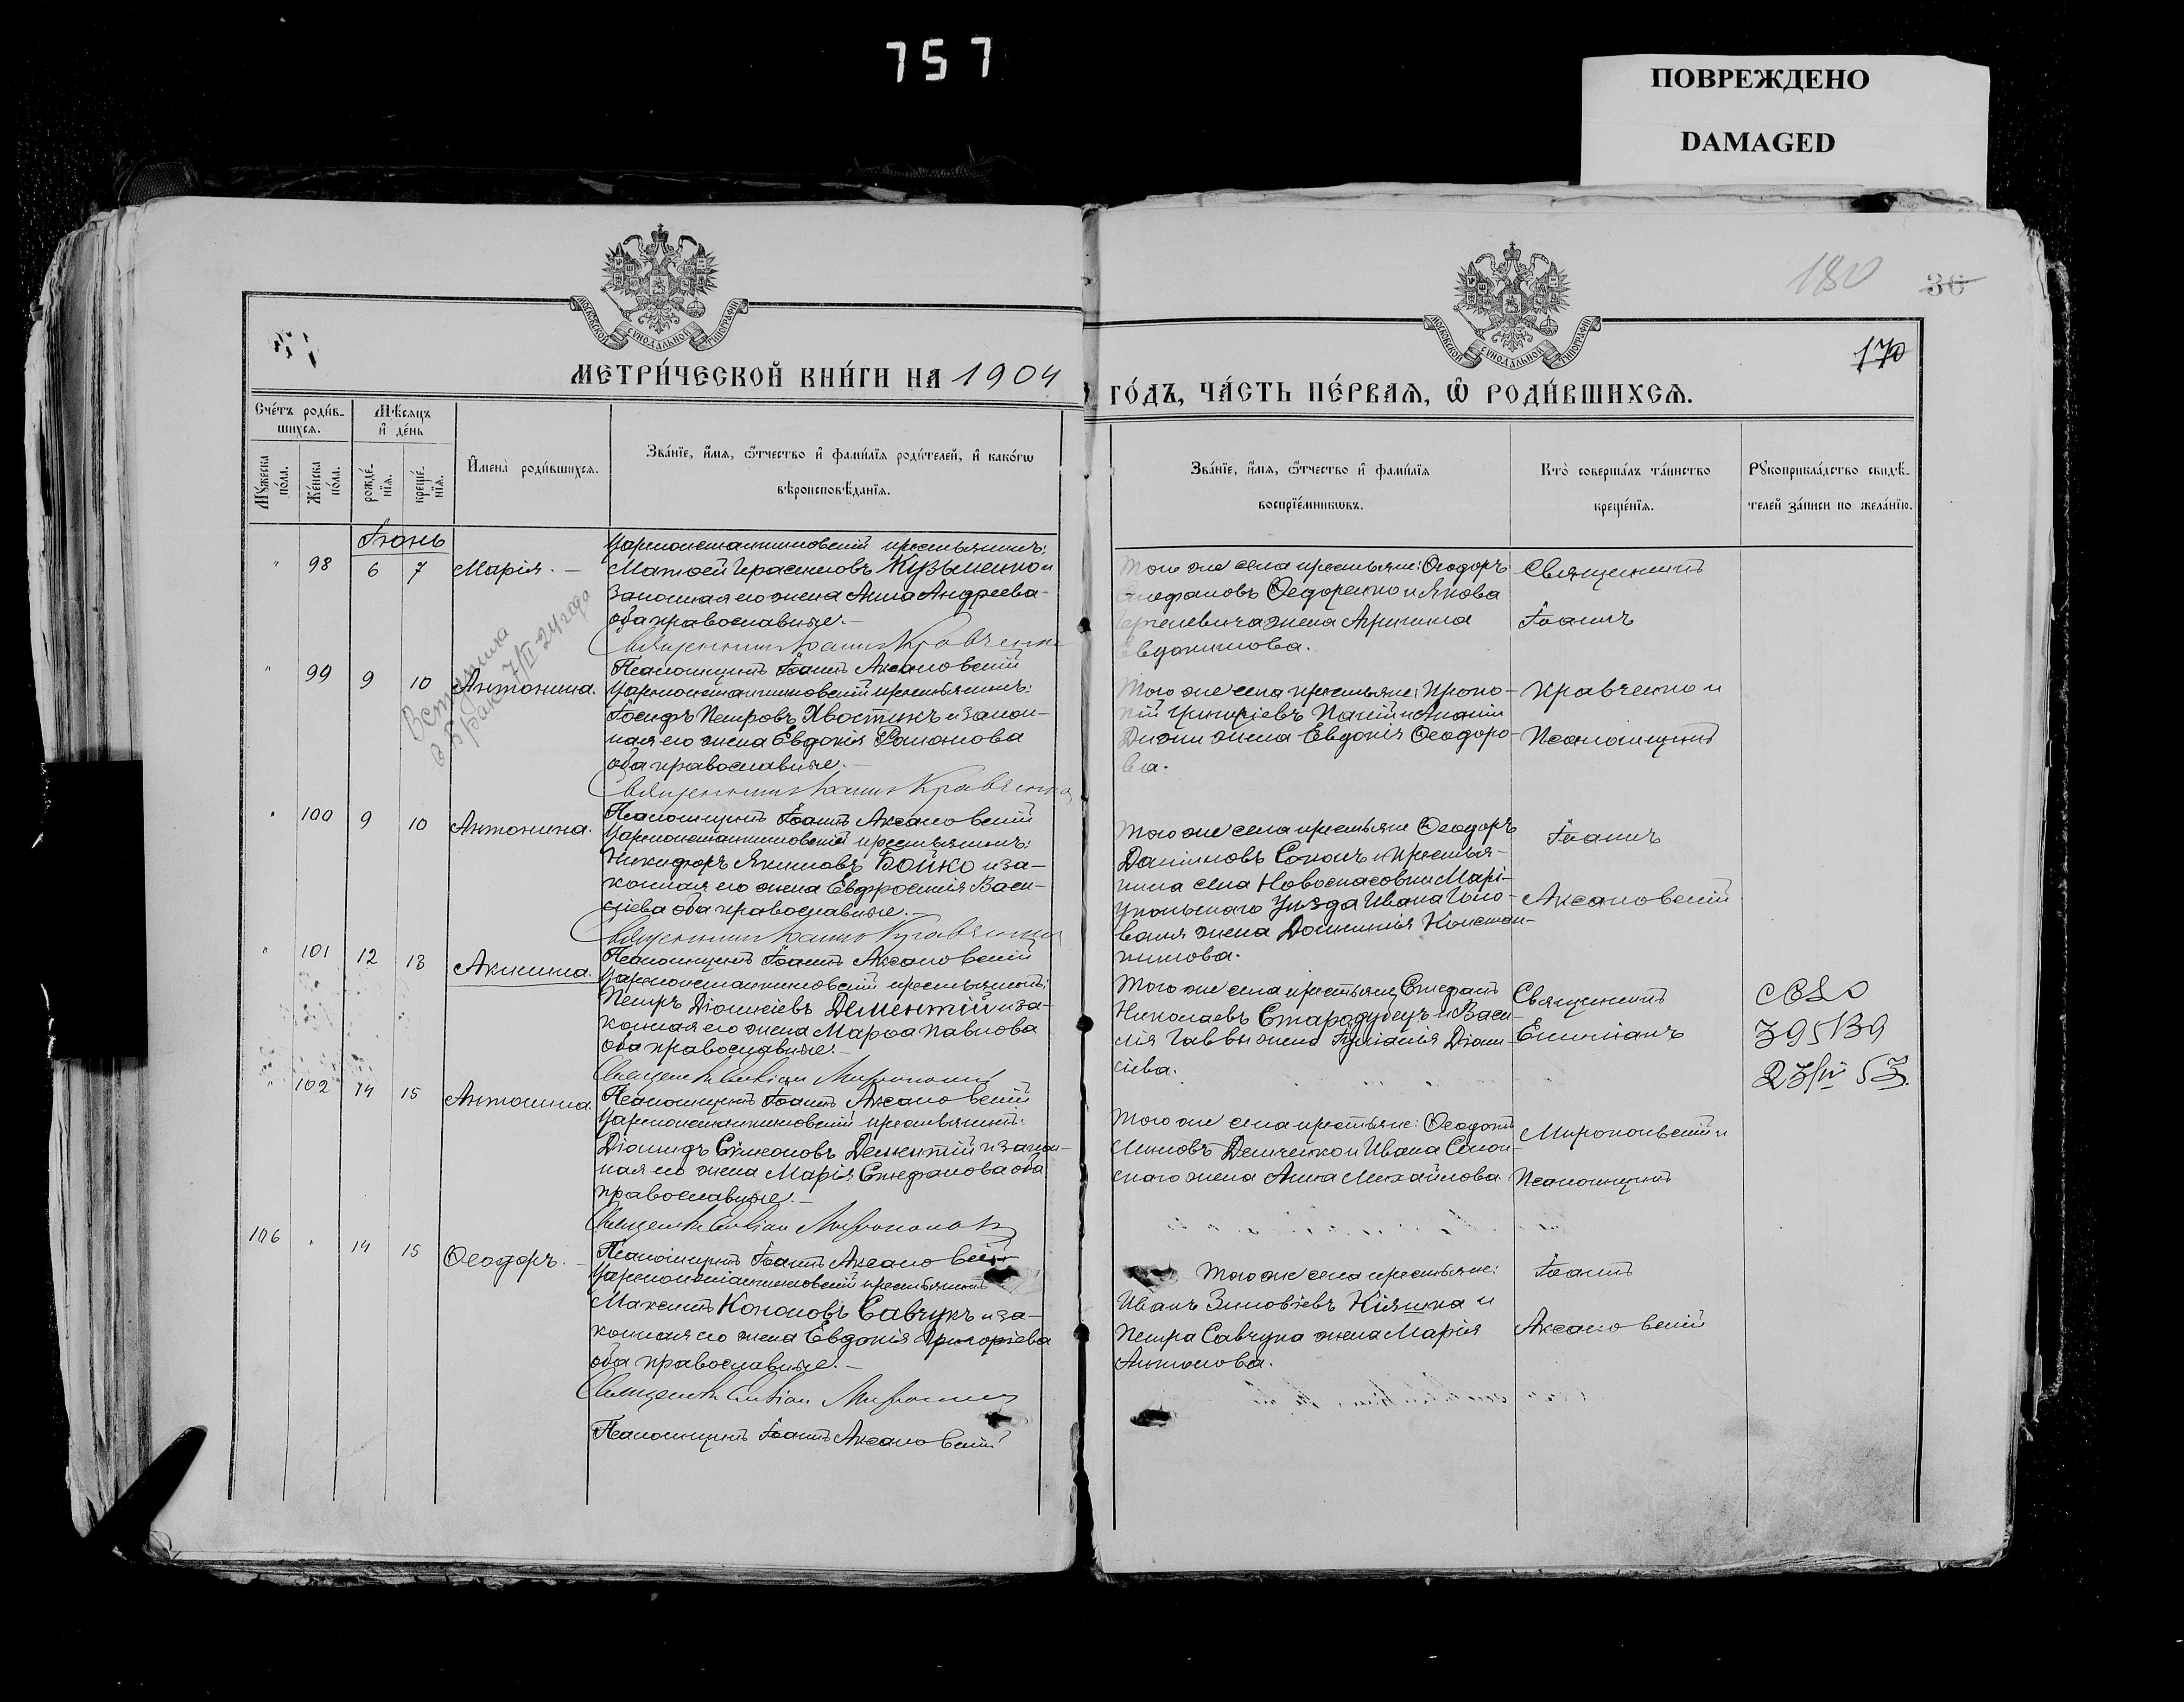 757
ПОВРЕЖДЕНО
DAMAGED
180
36
170
МОСКОВСКОЙ СѴНОДАЛЬНОЙ ТИПОГРАФІИ
МОСКОВСКОЙ СѴНОДАЛЬНОЙ ТИПОГРАФІИ
МЕТРИ́ЧЕСКОЙ КНИ́ГИ НА 1904
ГО́ДЪ, ЧА́СТЬ ПЕ́РВАЯ, Ѿ РОДИ́ВШИХСЯ.
Сче́тъ роди́в-
шихся.
Мѣсяцъ
и҆ де́нь
Мꙋ́жеска
по́ла.
Же́нска
по́ла.
рожде́-
нїя.
креще́-
нїя.
И҆мена̀ роди́вшихся.
Зва́нїе, и҆́мя, ѻ҆́тчество и҆ фами́лїя роди́телей, и҆ како́гѡ
вѣроисповѣ́данїя.
Зва́нїе, и҆́мя, ѻ҆́тчество и҆ фами́лїя
воспрїе́мникѡвъ.
Кто̀ соверша́лъ та́инство
креще́нїя.
Рꙋкоприкла́дство свидѣ́-
телей за́писи по жела́нїю.
Іюнь
" 98 6 7 Марія. —
Цареконстантиновскій крестьянинъ:
Матѳей Герасимовъ Кузьменко и
законная его жена Анна Андреева
оба православные. —
Священникъ Іоаннъ Кравченко
Псаломщикъ Іоаннъ Аксановскій
Того же села крестьяне: Ѳеодоръ
Стефановъ Ѳедоренко и Якова
жена Агрипина
Евдокимова.
Священникъ
Іоаннъ
Вступила
в брак 7/II-24 года
" 99 9 10 Антонина.
Цареконстантиновскій крестьянинъ:
Іосифъ Петровъ Хвостикъ и закон-
ная его жена Евдокія Романова
оба православные. —
Священникъ Іоаннъ Кравченко
Псаломщикъ Іоаннъ Аксановскій
Того же села крестьяне: Проко-
пій Григоріевъ
жена Евдокія Ѳеодоро-
ва.
Кравченко и
Псаломщикъ
" 100 9 10 Антонина.
Цареконстантиновскій крестьянинъ:
Никифоръ Якимовъ Бойко и за-
конная его жена Евфросинія Васи-
ліева оба православные. —
Священникъ Іоаннъ Кравченко
Псаломщикъ Іоаннъ Аксановскій
Того же села крестьяне Ѳеодоръ
Даніиловъ Соколъ и крестья-
нина села Новоспасовки Марі-
упольскаго уѣзда Ивана Голо-
ваня жена Домникія Констан-
тинова.
Іоаннъ
Аксановскій
" 101 12 13 Акилина.
Цареконстантиновскій крестьянинъ:
Петръ Діонисіевъ Дементій и за-
конная его жена Марѳа Павлова
оба православные. —
Псаломщикъ Іоаннъ Аксановскій
Того же села крестьяне Стефанъ
Николаевъ Стародубецъ и Васи-
лія Саввы жена Іуліанія Діони-
сіева.
Священникъ
Емиліанъ
395139
23/IV 53.
" 102 14 15 Антонина.
Цареконстантиновскій крестьянинъ:
Діомидъ Сѵмеоновъ Дементій и закон-
ная его жена Марія Стефанова оба
православные. —
Псаломщикъ Іоаннъ Аксановскій
Того же села крестьяне: Ѳеодотъ
Демченко и Ивана
жена Анна Михайлова
Миропольскій и
Псаломщикъ
106 " 14 15 Ѳеодоръ. —
Цареконстантиновскій крестьянинъ
Максимъ Кононовъ Савчукъ и за-
конная его жена Евдокія Григоріева
оба православные. —
Псаломщикъ Іоаннъ Аксановскій
Того же села крестьяне:
Иванъ Зиновіевъ Кіяшка и
Петра Савчука жена Марія
Антонова.
Іоаннъ
Аксановскій